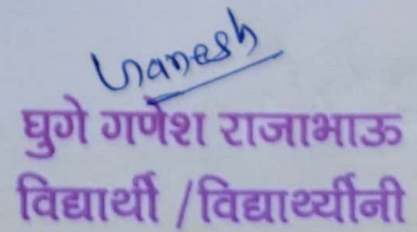 Ganesh
घुगे गणेश राजाभाऊ
विद्यार्थी /विद्यार्थ्यीनी